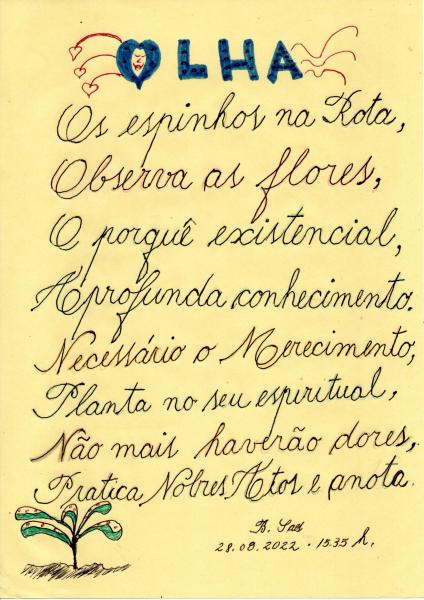 OLHA
Os espinhos na Rota,
Observa as flores,
O porquê existencial,
Aprofunda conhecimento.
Necessário o Merecimento,
Planta no seu espiritual,
Não mais haverão dores,
Pratica Nobres Atos e anota.
B.
28.08.2022 . 15.35 h.